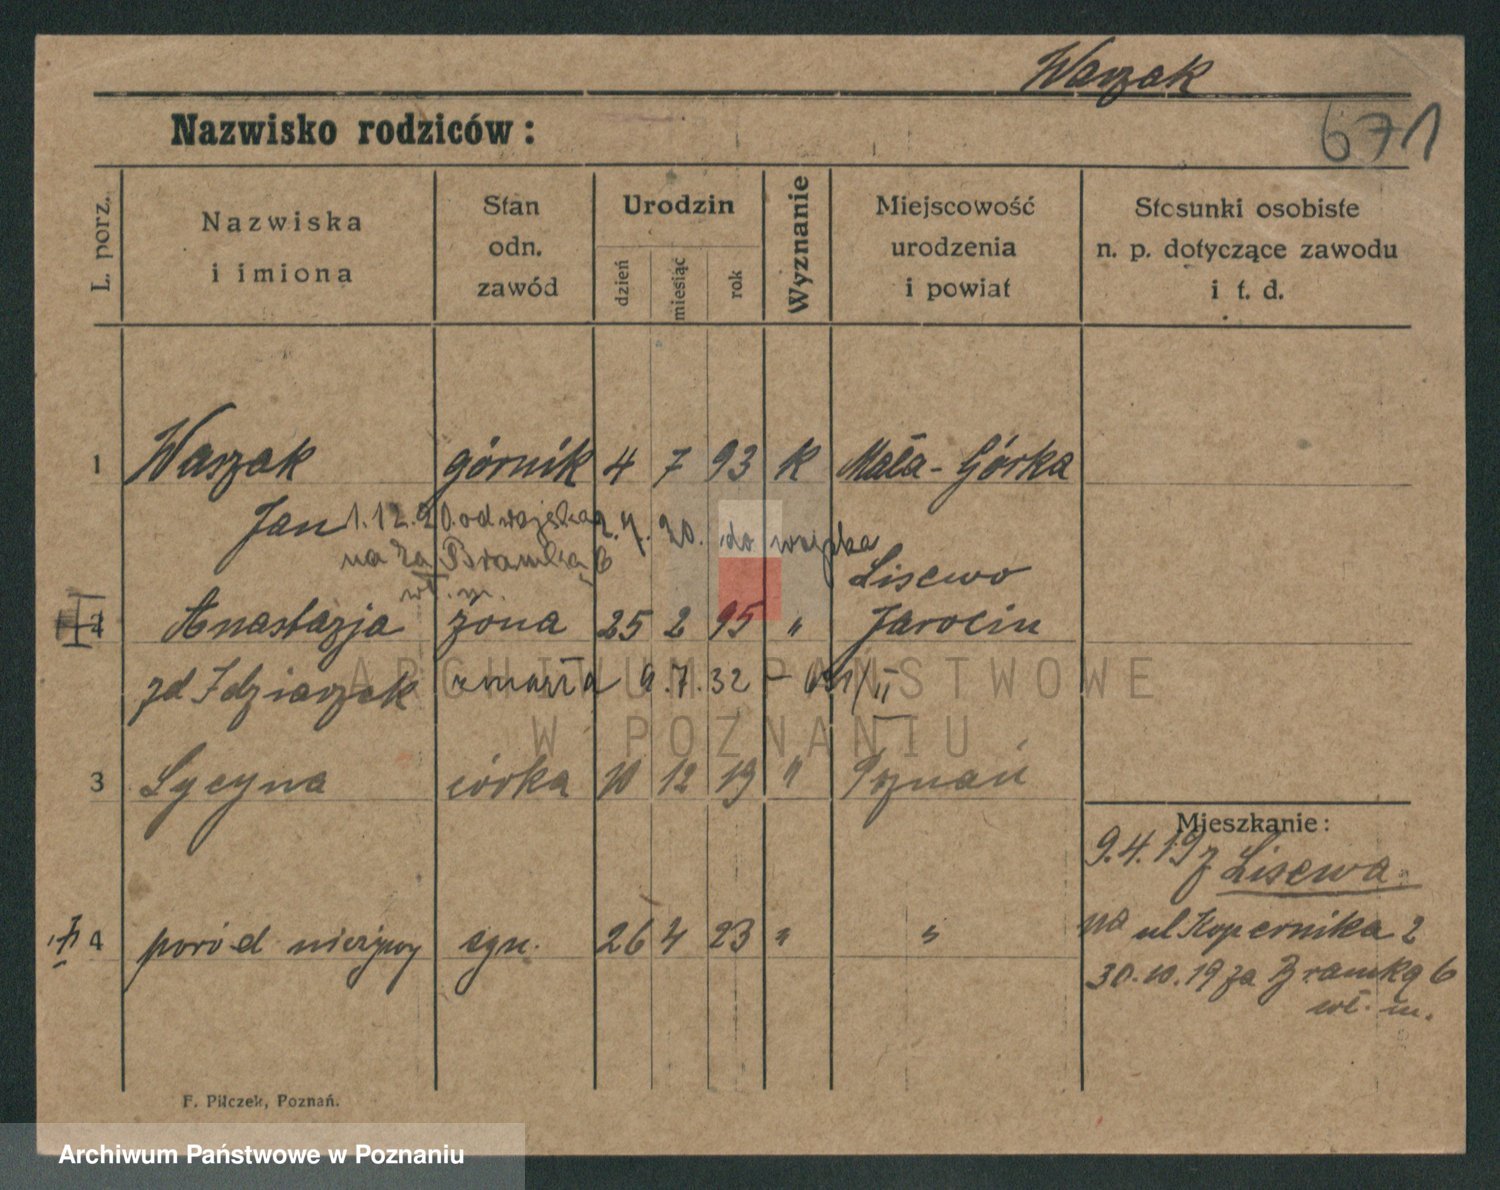 Waszak
671
Nazwisko rodziców:
L. porz.
Nazwiska
i imiona
Stan
odn.
zawód
Urodzin
dzień
miesiąc
rok
Wyznanie
Miejscowość
urodzenia
i powiat
Stosunki osobiste
n. p. dotyczące zawodu
i t. d.
1 Waszak górnik 4 7 93 k Mała-Górka
Jan 1.12.20. od wojska 2.7.20. do wojska
na Za Bramką 6
wł. m.
Lisewo
2 Anastazja żona 25 2 95 " Jarocin
zd Idziaszek zmarła 9.7.32
3 Lucyna córka 10 12 19 " Poznań
4 poród nieżywy syn. 26 4 23 " "
Mieszkanie:
9.4.19 z Lisewa.
na ul Kopernika 2
30.10.19 za Bramką 6
wł. m.
F. Pilczek, Poznań.
ARCHIWUM PAŃSTWOWE
W POZNANIU
Archiwum Państwowe w Poznaniu